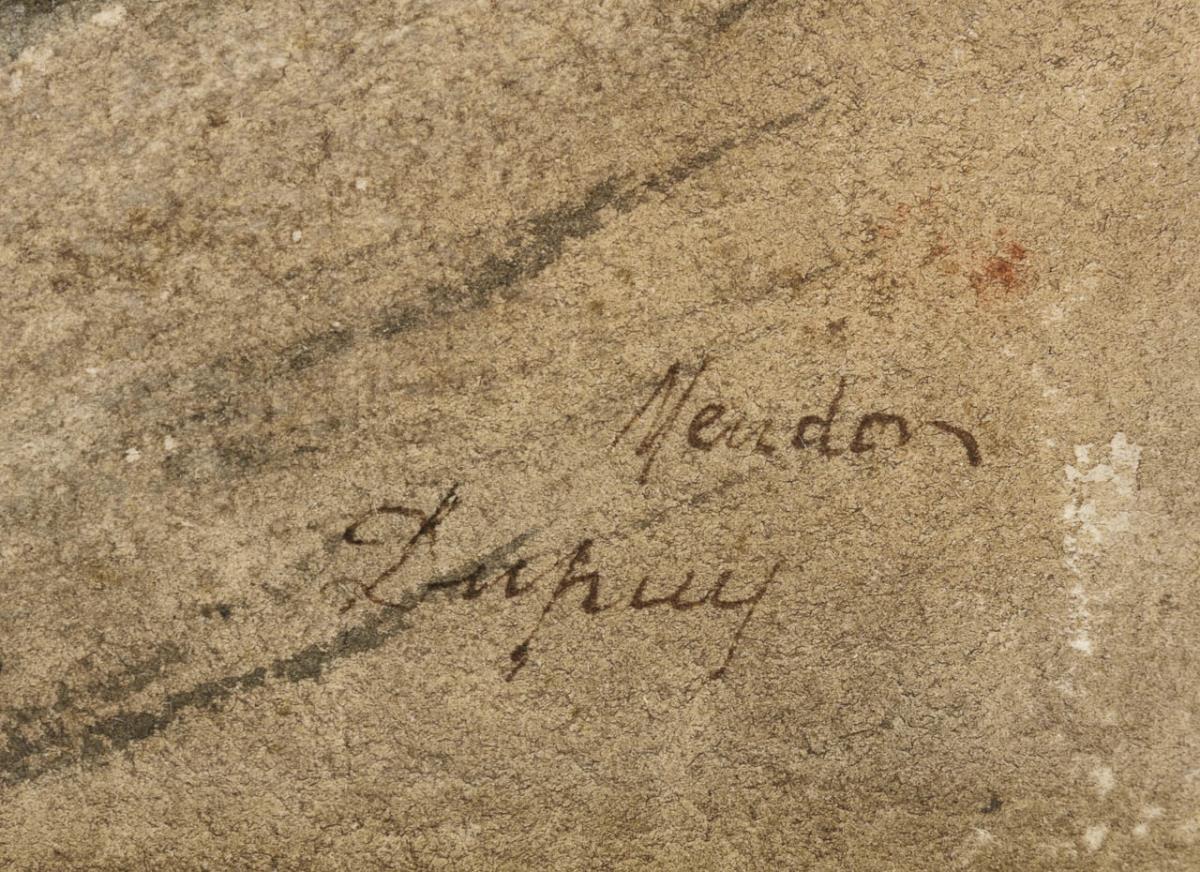 Meudon
Dupuy